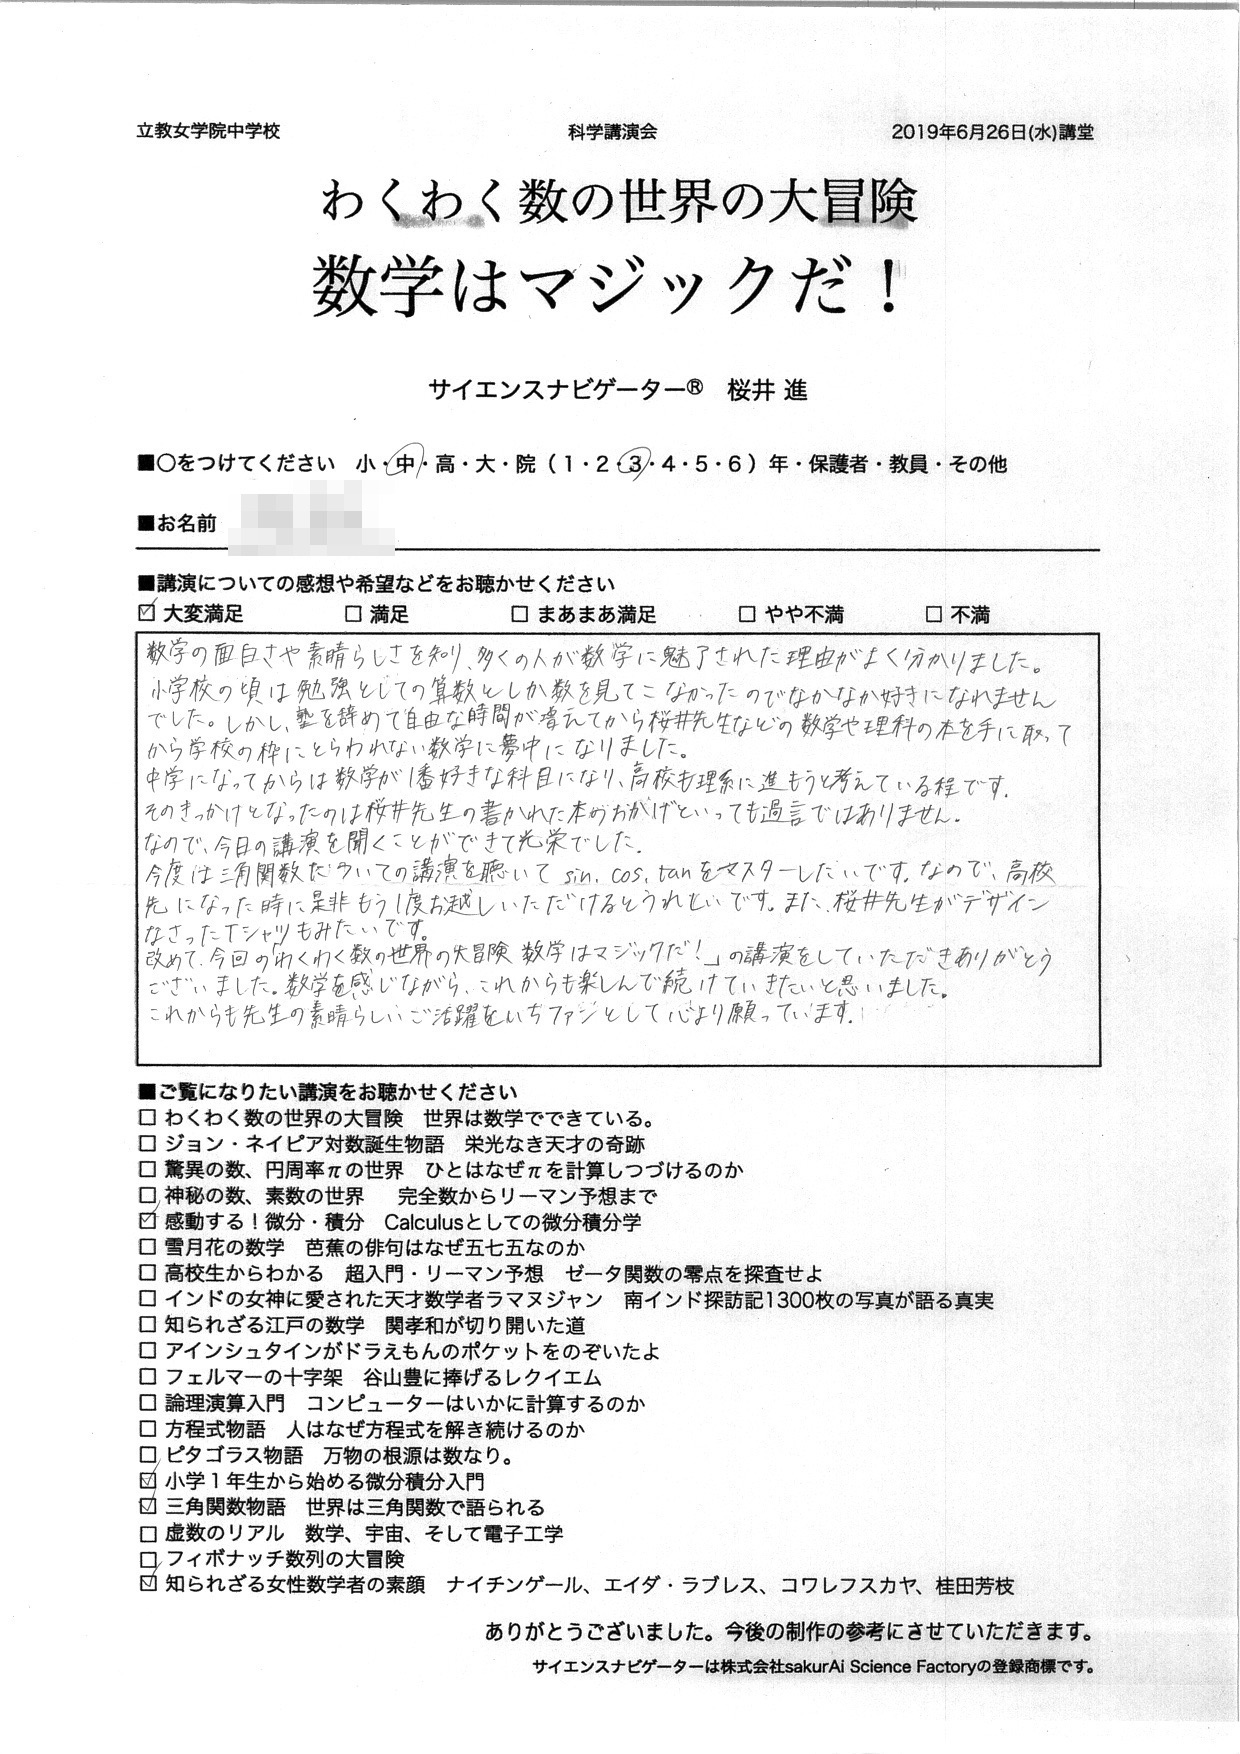 立教女学院中学校 科学講演会 2019年6月26日(水)講堂
わくわく数の世界の大冒険
数学はマジックだ！
サイエンスナビゲーター® 桜井 進
■○をつけてください 小・中・高・大・院（1・2・3・4・5・6）年・保護者・教員・その他
■お名前
■講演についての感想や希望などをお聴かせください
☑ 大変満足 □ 満足 □ まあまあ満足 □ やや不満 □ 不満
数学の面白さや素晴らしさを知り、多くの人が数学に魅了された理由がよく分かりました。
小学校の頃は勉強としての算数としか数を見てこなかったのでなかなか好きになれません
でした。しかし、塾を辞めて自由な時間が増えてから桜井先生などの数学や理科の本を手に取って
から学校の枠にとらわれない数学に夢中になりました。
中学になってからは数学が1番好きな科目になり、高校も理系に進もうと考えている程です。
そのきっかけとなったのは桜井先生の書かれた本のおかげといっても過言ではありません。
なので、今日の講演を聞くことができて光栄でした。
今度は三角関数についての講演を聴いて sin, cos, tanをマスターしたいです。なので、高校
先になった時に是非もう1度お越しいただけるとうれしいです。また、桜井先生がデザイン
なさったTシャツもみたいです。
改めて、今回の「わくわく数の世界の大冒険 数学はマジックだ！」の講演をしていただきありがとう
ございました。数学を感じながら、これからも楽しんで続けていきたいと思いました。
これからも先生の素晴らしいご活躍をいちファンとして心より願っています。
■ご覧になりたい講演をお聴かせください
□ わくわく数の世界の大冒険 世界は数学でできている。
□ ジョン・ネイピア対数誕生物語 栄光なき天才の奇跡
□ 驚異の数、円周率πの世界 ひとはなぜπを計算しつづけるのか
□ 神秘の数、素数の世界 完全数からリーマン予想まで
☑ 感動する！微分・積分 Calculusとしての微分積分学
□ 雪月花の数学 芭蕉の俳句はなぜ五七五なのか
□ 高校生からわかる 超入門・リーマン予想 ゼータ関数の零点を探査せよ
□ インドの女神に愛された天才数学者ラマヌジャン 南インド探訪記1300枚の写真が語る真実
□ 知られざる江戸の数学 関孝和が切り開いた道
□ アインシュタインがドラえもんのポケットをのぞいたよ
□ フェルマーの十字架 谷山豊に捧げるレクイエム
□ 論理演算入門 コンピューターはいかに計算するのか
□ 方程式物語 人はなぜ方程式を解き続けるのか
□ ピタゴラス物語 万物の根源は数なり。
☑ 小学１年生から始める微分積分入門
☑ 三角関数物語 世界は三角関数で語られる
□ 虚数のリアル 数学、宇宙、そして電子工学
□ フィボナッチ数列の大冒険
☑ 知られざる女性数学者の素顔 ナイチンゲール、エイダ・ラブレス、コワレフスカヤ、桂田芳枝
ありがとうございました。今後の制作の参考にさせていただきます。
サイエンスナビゲーターは株式会社sakurAi Science Factoryの登録商標です。